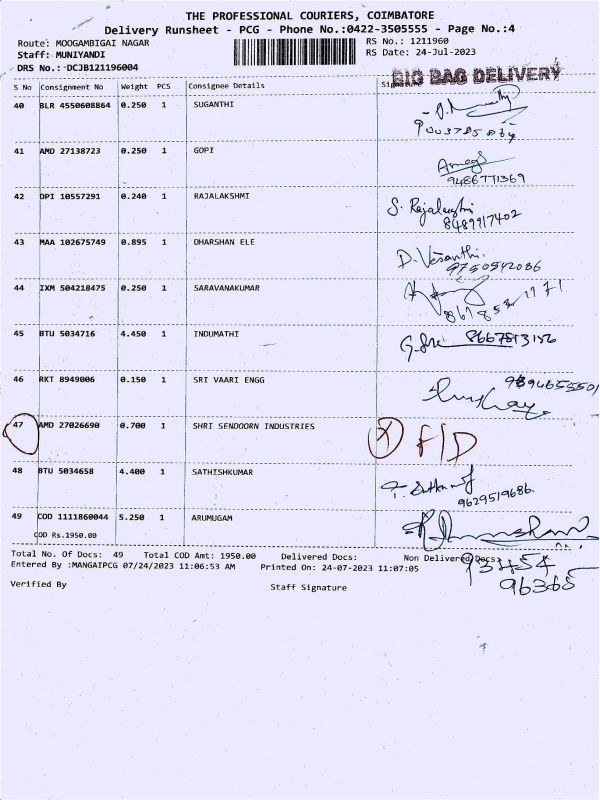 THE PROFESSIONAL COURIERS, COIMBATORE
Delivery Runsheet - PCG - Phone No.:0422-3505555 - Page No.:4
Route: MOOGAMBIGAI NAGAR RS No.: 1211960
Staff: MUNIYANDI RS Date: 24-Jul-2023
DRS No.: DCJB121196004
BIG BAG DELIVERY
S No Consignment No Weight PCS Consignee Details
40 BLR 4550608864 0.250 1 SUGANTHI
41 AMD 27138723 0.250 1 GOPI
9486771369
42 DPI 10557291 0.240 1 RAJALAKSHMI
S. Rajalakshmi
8489917402
43 MAA 102675749 0.895 1 DHARSHAN ELE
D. Vasanthi.
9750542086
44 IXM 504218475 0.250 1 SARAVANAKUMAR
45 BTU 5034716 4.450 1 INDUMATHI
8667813156
46 RKT 8949006 0.150 1 SRI VAARI ENGG
47 AMD 27026690 0.700 1 SHRI SENDOORN INDUSTRIES
X F/D
48 BTU 5034658 4.400 1 SATHISHKUMAR
9629519686.
49 COD 1111860044 5.250 1 ARUMUGAM
COD Rs.1950.00
Total No. Of Docs: 49 Total COD Amt: 1950.00 Delivered Docs: Non Delivered Docs:
93454
Entered By :MANGAIPCG 07/24/2023 11:06:53 AM Printed On: 24-07-2023 11:07:05
96365
Verified By Staff Signature